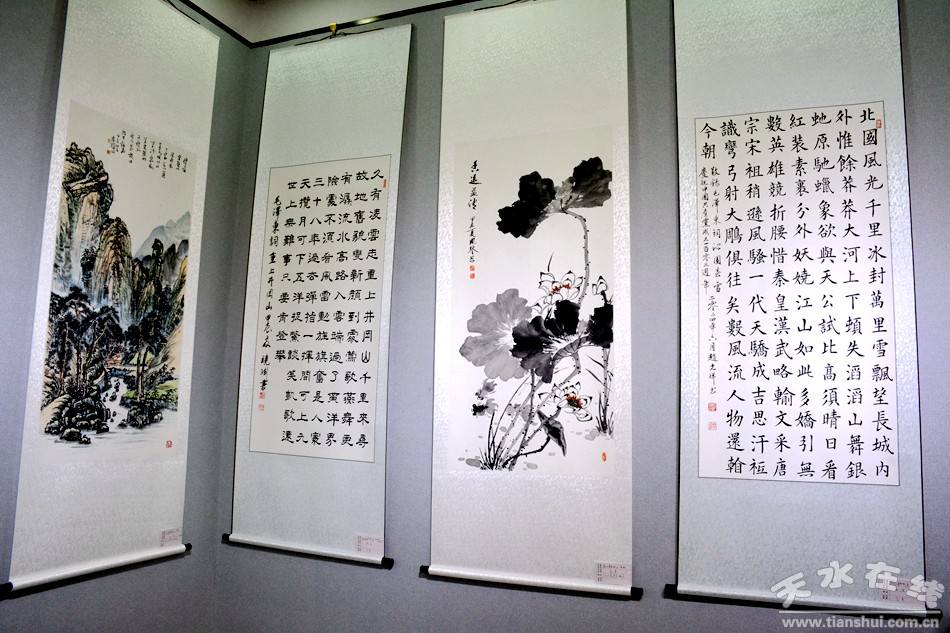 久有凌雲志重上井岡山千里來尋
故地舊貌變新顏到處鶯歌燕舞更
有潺流水高路入雲端過了黃洋界
險處不須看風雷動旌旗奮是人寰
三十八年過去彈指一揮間可上九
天攬月可下五洋捉鱉談笑凱歌還
世上無難事只要肯登攀
毛澤東詞重上井岡山甲辰 書
香遠益清
北國風光千里冰封萬里雪飄望長城内
外惟餘莽莽大河上下頓失滔滔山舞銀
虵原馳蠟象欲與天公試比高須晴日看
紅装素裹分外妖嬈江山如此多嬌引無
數英雄競折腰惜秦皇漢武略輸文采唐
宗宋祖稍遜風騷一代天驕成吉思汗祗
識彎弓射大鵰俱往矣數風流人物還翰
今朝
敬錄毛澤東詞沁園春雪
慶祝中国共產黨成立一百零三週年 二零二四年六月趙 書
天水在线
www.tianshui.com.cn